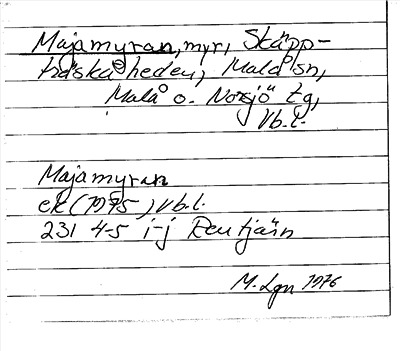 Majamyran, myr, Skäpp-
träskåheden, Malå sn,
Malå o. Norsjö tg,
Vb.l.
Majamyran
ek (1975) Vb.l.
231 4-5 i-j Rentjärn
M. Lgn 1976